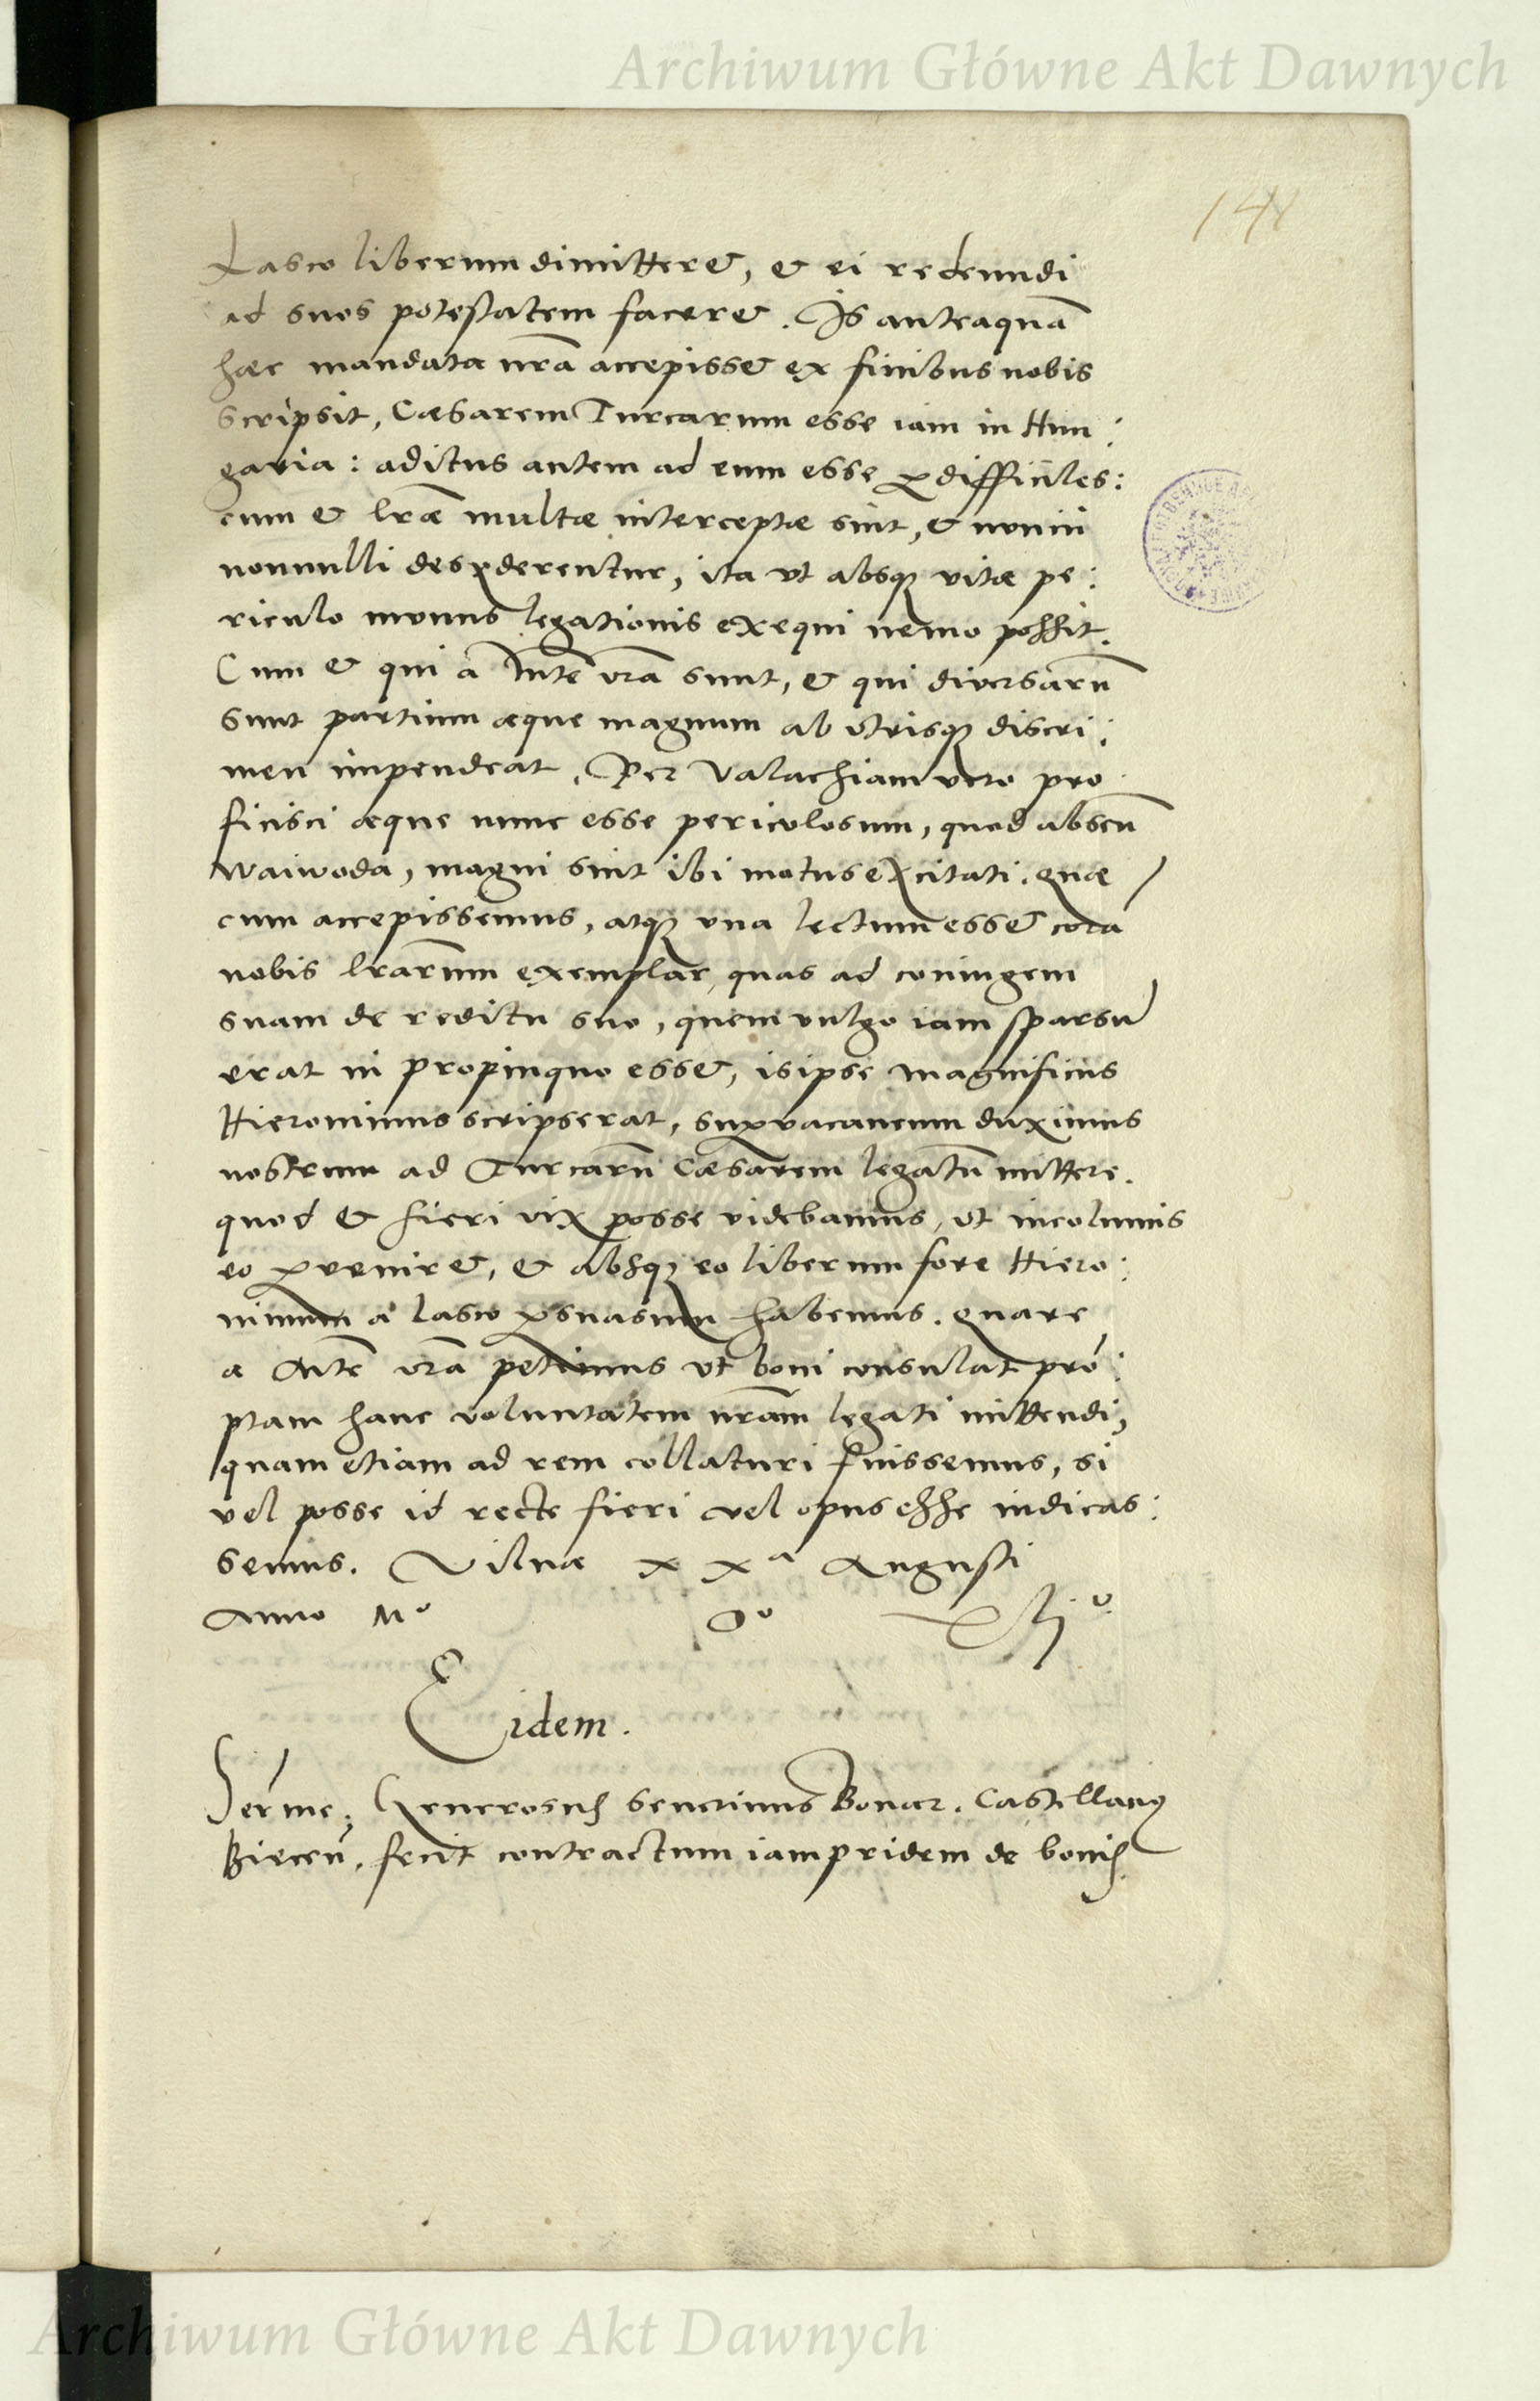 Archiwum Główne Akt Dawnych
141
Lasco liberum dimitteret, et ei redeundi
ad suos potestatem faceret. Is anteaquā
haec mandata nr̄a accepisset ex finibus nobis
scripsit, Caesarem Turcarum esse iam in Hun:
garia: aditus autem ad eum esse ꝑdifficiles:
cum et lr̄ae multae interceptae sint, et
nonnulli desyderentur, ita ut absqꝫ vitae pe:
riculo munus legationis exequi nemo possit.
Cum et qui a Mte vr̄a sunt, et qui diversarū
sunt partium aeque magnum ab utrisqꝫ discri:
men impendeat. Per Valachiam vero pro
ficisci aeque nunc esse periculosum, quod absen
Waiwoda, magni sint ibi motus excitati. quae
cum accepissemus, atqꝫ una lectum esset corā
nobis lr̄arum exemplar, quas ad coniugem
suam de reditu suo, quem vulgo iam sparsū
erat in propinquo esse, is ipse magnificus
Hieronimus scripserat, suꝑvacaneum duximus
nostrum ad Turcarū Caesarem legatū mittere.
quod et fieri vix posse videbamus, ut incolumis
eo ꝑveniret, et absqꝫ eo liberum fore Hiero:
nimum a Lasco ꝑsuasum habemus. quare
a Mte vr̄a petimus ut boni consulat prō:
ptam hanc voluntatem nr̄am legati mittendi,
quam etiam ad rem collaturi fuissemus, si
vel posse id recte fieri vel opus esse iudicas:
semus. Vilnae XXa Augusti
Anno Mo Do XLio.
Eidem.
Serme. Generosus Severinus Boner. Castellanꝰ
Biecen̄, fecit contractum iampridem de bonis
Archiwum Główne Akt Dawnych